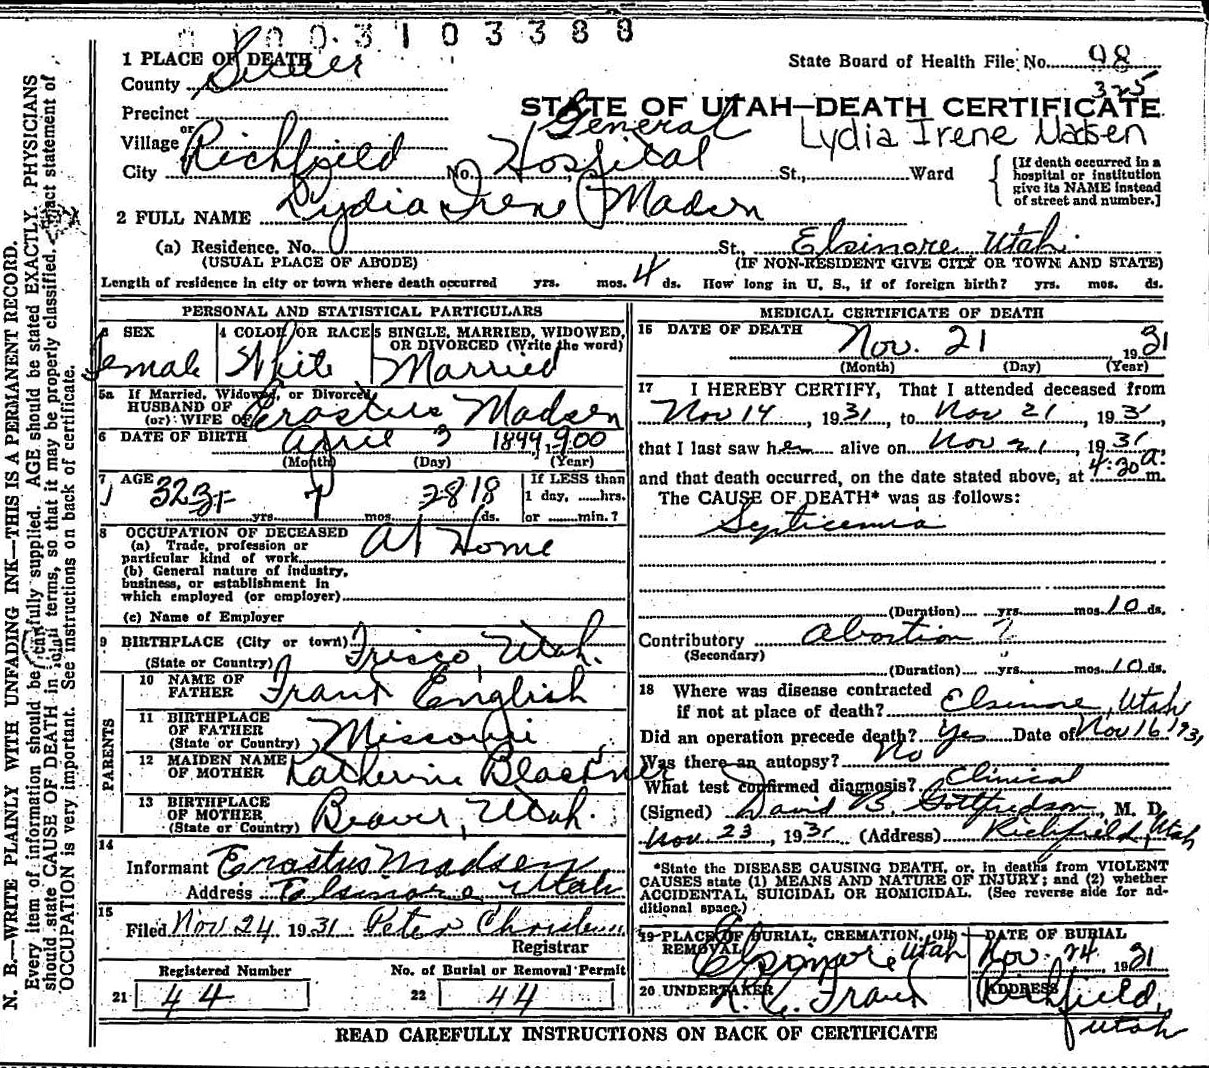 0 0 3 1 0 3 3 8 8
1 PLACE OF DEATH
State Board of Health File No. 98
325
County Sevier
STATE OF UTAH—DEATH CERTIFICATE
Precinct
General
Lydia Irene Madsen
or
Village
City Richfield No. Hospital St., Ward
[If death occurred in a
hospital or institution
give its NAME instead
of street and number.]
2 FULL NAME Lydia Irene Madsen
(a) Residence. No. St., Elsinore Utah.
(USUAL PLACE OF ABODE) (IF NON-RESIDENT GIVE CITY OR TOWN AND STATE)
Length of residence in city or town where death occurred yrs. mos. 4 ds. How long in U. S., if of foreign birth? yrs. mos. ds.
PERSONAL AND STATISTICAL PARTICULARS
3 SEX
Female
4 COLOR OR RACE
White
5 SINGLE, MARRIED, WIDOWED,
OR DIVORCED (Write the word)
Married
5a If Married, Widowed, or Divorced
HUSBAND OF
(or) WIFE OF Erastus Madsen
6 DATE OF BIRTH April 3 1899, 1900
(Month) (Day) (Year)
7 AGE 32 31 yrs. 7 mos. 28 18 ds.
If LESS than
1 day, ......hrs.
or ......min.?
8 OCCUPATION OF DECEASED
(a) Trade, profession or
particular kind of work At Home
(b) General nature of industry,
business, or establishment in
which employed (or employer)
(c) Name of Employer
9 BIRTHPLACE (City or town) Frisco, Utah.
(State or Country)
PARENTS
10 NAME OF
FATHER Frank English
11 BIRTHPLACE
OF FATHER
(State or Country) Missouri
12 MAIDEN NAME
OF MOTHER Katherine Blackner
13 BIRTHPLACE
OF MOTHER
(State or Country) Beaver, Utah.
14
Informant Erastus Madsen
Address Elsinore Utah
15
Filed Nov 24 1931 Peter
Registrar
Registered Number
21 44
No. of Burial or Removal Permit
22 44
MEDICAL CERTIFICATE OF DEATH
16 DATE OF DEATH Nov. 21 1931
(Month) (Day) (Year)
17 I HEREBY CERTIFY, That I attended deceased from
Nov 14, 1931, to Nov 21, 1931,
that I last saw her alive on Nov 21, 1931,
and that death occurred, on the date stated above, at 4:30 a. m.
The CAUSE OF DEATH* was as follows:
Septicemia
(Duration) yrs. mos. 10 ds.
Contributory Abortion ?
(Secondary)
(Duration) yrs. mos. 10 ds.
18 Where was disease contracted
if not at place of death? Elsinore, Utah
Did an operation precede death? Yes Date of Nov 16 1931
Was there an autopsy? No
What test confirmed diagnosis? Clinical
(Signed) David B. Gottfredson, M. D.
Nov 23, 1931 (Address) Richfield, Utah
*State the DISEASE CAUSING DEATH, or, in deaths from VIOLENT
CAUSES state (1) MEANS AND NATURE OF INJURY; and (2) whether
ACCIDENTAL, SUICIDAL OR HOMICIDAL. (See reverse side for ad-
ditional space.)
19 PLACE OF BURIAL, CREMATION, OR
REMOVAL Elsinore, Utah
DATE OF BURIAL
Nov. 24, 1931
20 UNDERTAKER
ADDRESS
Richfield,
Utah
READ CAREFULLY INSTRUCTIONS ON BACK OF CERTIFICATE
N. B.—WRITE PLAINLY WITH UNFADING INK—THIS IS A PERMANENT RECORD.
Every item of information should be carefully supplied. AGE should be stated EXACTLY. PHYSICIANS
should state CAUSE OF DEATH in plain terms, so that it may be properly classified. Exact statement of
OCCUPATION is very important. See instructions on back of certificate.